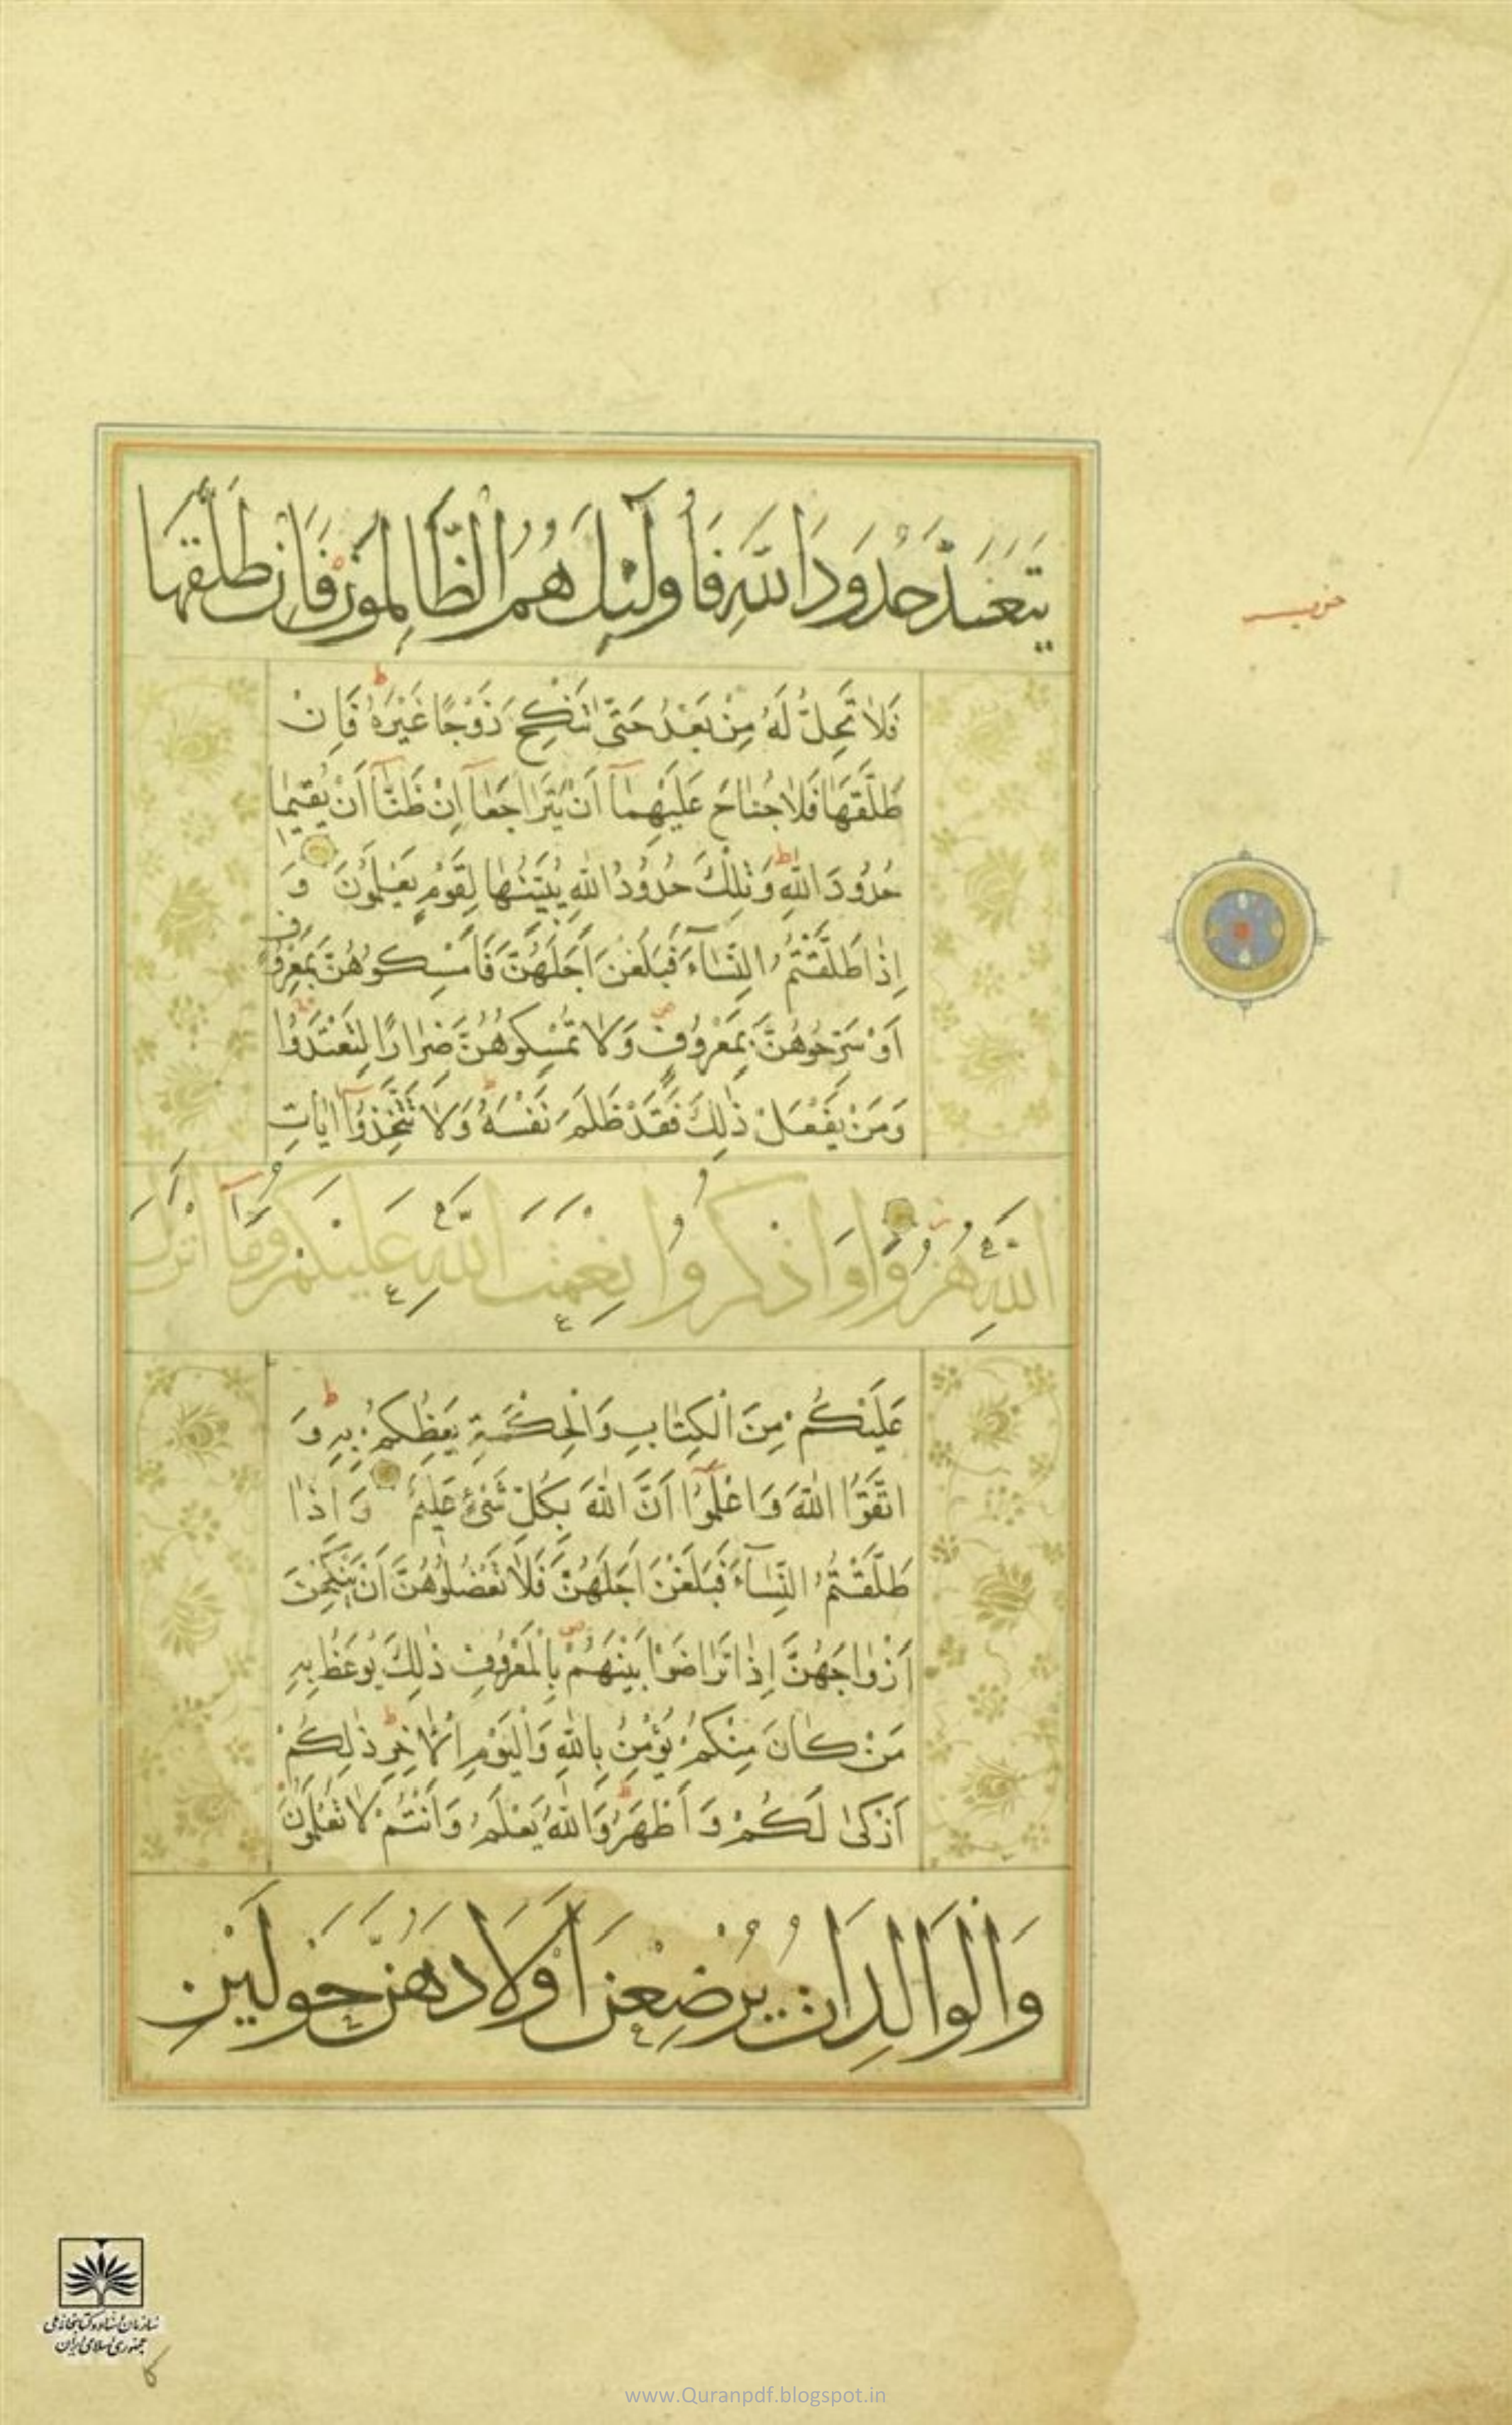 يَتَعَدَّ حُدُودَ اللّٰهِ فَاُولٰٓئِكَ هُمُ الظَّالِمُونَ فَاِنْ طَلَّقَهَا
فَلَا تَحِلُّ لَهُ مِنْ بَعْدُ حَتّٰى تَنْكِحَ زَوْجًا غَيْرَهُ ط فَاِنْ
طَلَّقَهَا فَلَا جُنَاحَ عَلَيْهِمَآ اَنْ يَتَرَاجَعَآ اِنْ ظَنَّآ اَنْ يُقِيمَا
حُدُودَ اللّٰهِ ط وَتِلْكَ حُدُودُ اللّٰهِ يُبَيِّنُهَا لِقَوْمٍ يَعْلَمُونَ وَ
اِذَا طَلَّقْتُمُ النِّسَآءَ فَبَلَغْنَ اَجَلَهُنَّ فَاَمْسِكُوهُنَّ بِمَعْرُوفٍ
اَوْ سَرِّحُوهُنَّ بِمَعْرُوفٍ ص وَلَا تُمْسِكُوهُنَّ ضِرَارًا لِتَعْتَدُوا
وَمَنْ يَفْعَلْ ذٰلِكَ فَقَدْ ظَلَمَ نَفْسَهُ ط وَلَا تَتَّخِذُوٓا اٰيَاتِ
اللّٰهِ هُزُوًا وَاذْكُرُوا نِعْمَتَ اللّٰهِ عَلَيْكُمْ وَمَآ اَنْزَلَ
عَلَيْكُمْ مِنَ الْكِتَابِ وَالْحِكْمَةِ يَعِظُكُمْ بِهِ ط وَ
اتَّقُوا اللّٰهَ وَاعْلَمُوٓا اَنَّ اللّٰهَ بِكُلِّ شَىْءٍ عَلِيمٌ وَاِذَا
طَلَّقْتُمُ النِّسَآءَ فَبَلَغْنَ اَجَلَهُنَّ فَلَا تَعْضُلُوهُنَّ اَنْ يَنْكِحْنَ
اَزْوَاجَهُنَّ اِذَا تَرَاضَوْا بَيْنَهُمْ بِالْمَعْرُوفِ ذٰلِكَ يُوعَظُ بِهِ
مَنْ كَانَ مِنْكُمْ يُؤْمِنُ بِاللّٰهِ وَالْيَوْمِ الْاٰخِرِ ط ذٰلِكُمْ
اَزْكٰى لَكُمْ وَاَطْهَرُ ط وَاللّٰهُ يَعْلَمُ وَاَنْتُمْ لَا تَعْلَمُونَ
وَالْوَالِدَاتُ يُرْضِعْنَ اَوْلَادَهُنَّ حَوْلَيْنِ
سازمان اسناد و کتابخانه ملی
جمهوری اسلامی ایران
www.Quranpdf.blogspot.in